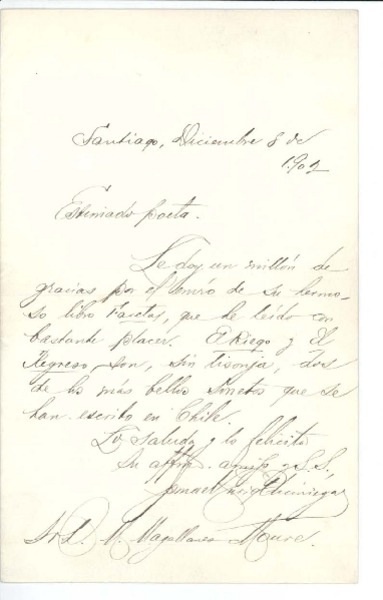 Santiago, Diciembre 8 de
1902
Estimado poeta.
Le doy un millón de
gracias por el envío de su hermo-
so libro Facetas, que he leído con
bastante placer. El Riego y El
Regreso, son, sin lisonja, dos
de los más bellos sonetos que se
han escrito en Chile.
Lo saluda y lo felicita
Su affmo. amigo y S.S.
Sr D. M. Magallanes Moure.